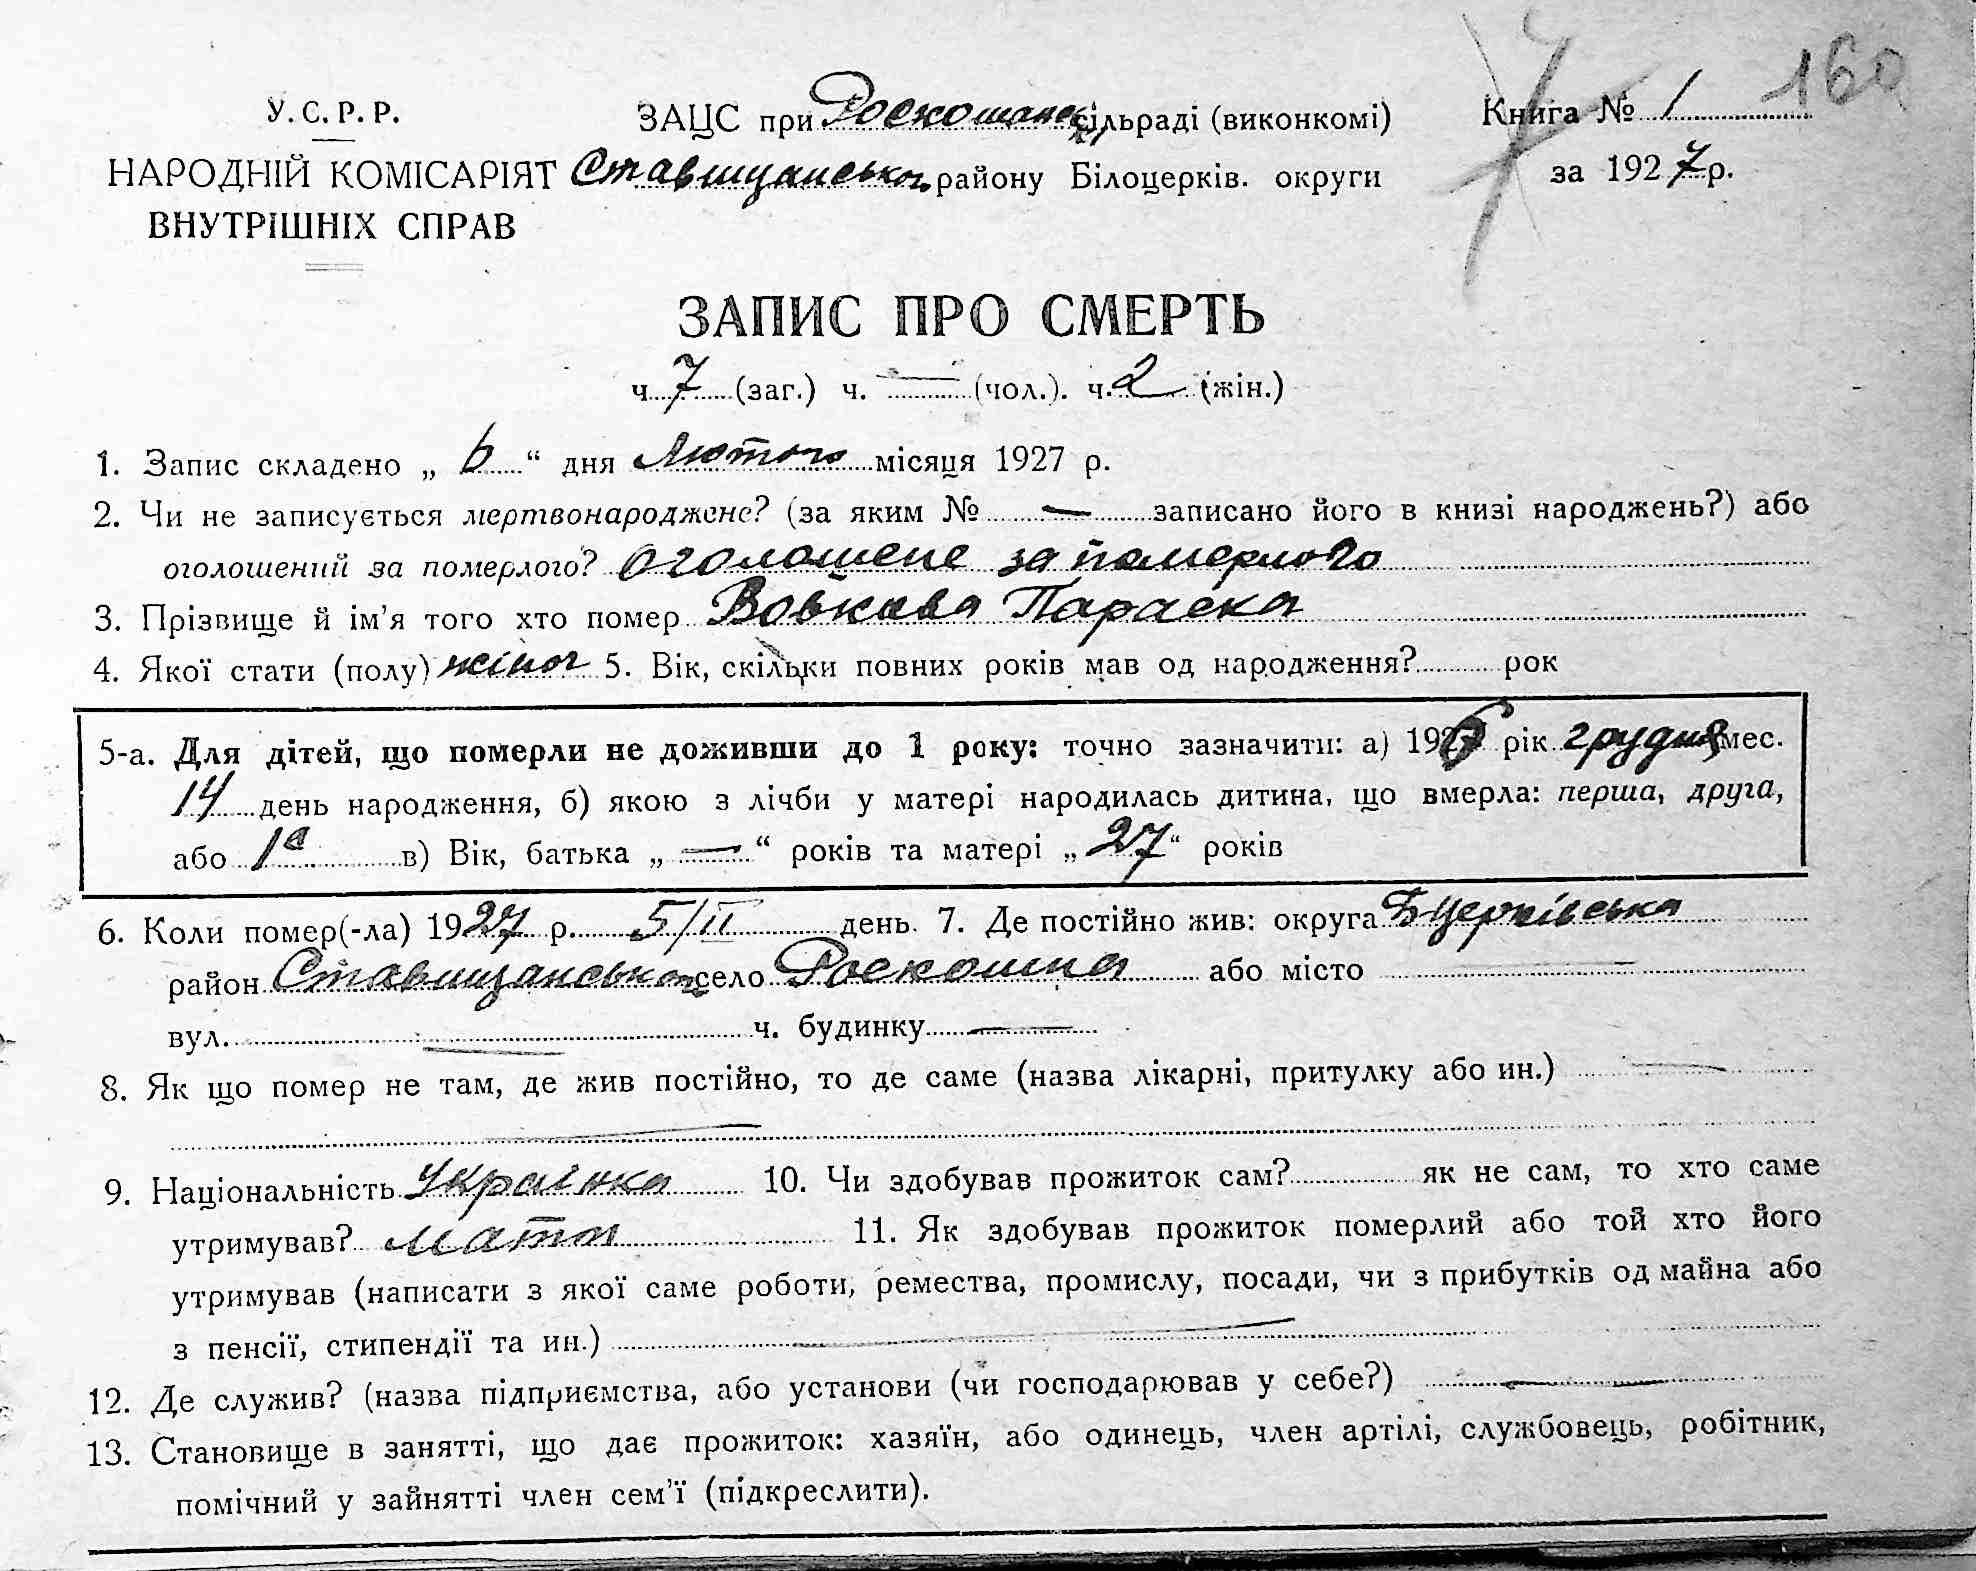 160
У.С.Р.Р.
НАРОДНІЙ КОМІСАРІЯТ
ВНУТРІШНІХ СПРАВ
ЗАЦС при Роскошанск сільраді (виконкомі)
Ставищанського району Білоцерків. округи
Книга № 1
за 1927 р.
7
ЗАПИС ПРО СМЕРТЬ
ч. 7 (заг.) ч. — (чол.). ч. 2 (жін.)
1. Запис складено „ 6 “ дня Лютого місяця 1927 р.
2. Чи не записується мертвонароджене? (за яким № — записано його в книзі народжень?) або
оголошений за померлого? оголошене за померлого
3. Прізвище й ім’я того хто помер Вовкова Параска
4. Якої стати (полу) жіноч 5. Вік, скільки повних років мав од народження? рок
5-а. Для дітей, що померли не доживши до 1 року: точно зазначити: а) 1926 рік грудня мес.
14 день народження, б) якою з лічби у матері народилась дитина, що вмерла: перша, друга,
або 1а в) Вік, батька „ — “ років та матері „ 27 “ років
6. Коли помер(-ла) 1927 р. 5/II день. 7. Де постійно жив: округа Б Церківська
район Ставищанського село Роскошна або місто —
вул. — ч. будинку —
8. Як що помер не там, де жив постійно, то де саме (назва лікарні, притулку або ин.) —
9. Національність Українка 10. Чи здобував прожиток сам? як не сам, то хто саме
утримував? мати 11. Як здобував прожиток померлий або той хто його
утримував (написати з якої саме роботи, ремества, промислу, посади, чи з прибутків од майна або
з пенсії, стипендії та ин.) —
12. Де служив? (назва підприємства, або установи (чи господарював у себе?) —
13. Становище в занятті, що дає прожиток: хазяїн, або одинець, член артілі, службовець, робітник,
помічний у зайнятті член сем’ї (підкреслити).